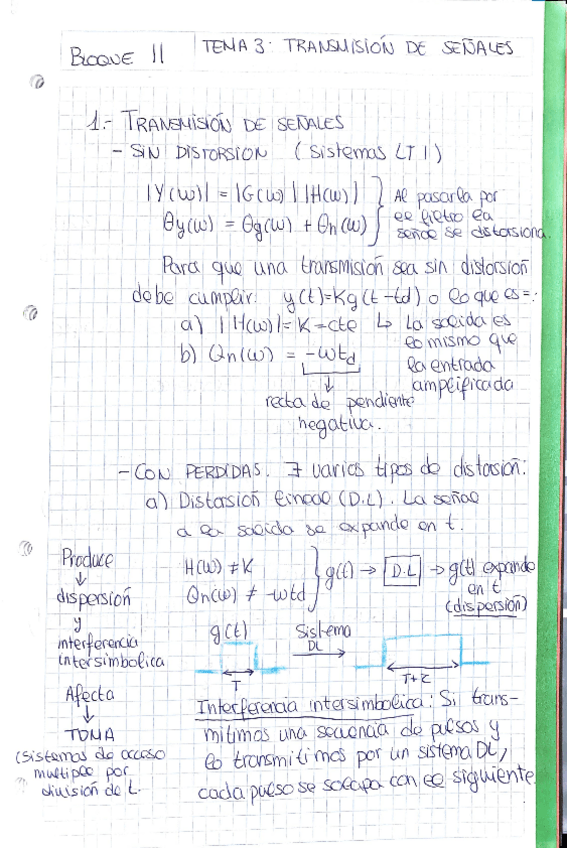 BLOQUE II
TEMA 3: TRANSMISIÓN DE SEÑALES
1.- TRANSMISIÓN DE SEÑALES
- SIN DISTORSION (Sistemas LTI)
|Y(ω)| = |G(ω)||H(ω)|
θy(ω) = θg(ω) + θh(ω)
Al pasarla por
el filtro la
señal se distorsiona.
Para que una transmisión sea sin distorsión
debe cumplir: y(t)=Kg(t-td) o lo que es =:
a) |H(ω)|= K = cte
b) θh(ω) = -ωtd
↳ La salida es
lo mismo que
la entrada
amplificada
↓
recta de pendiente
negativa.
- CON PERDIDAS. ∃ varios tipos de distorsión:
a) Distorsión lineal (D.L). La señal
a la salida se expande en t.
Produce
↓
dispersión
y
interferencia
intersimbolica
Afecta
↓
TDMA
(Sistemas de acceso
multiple por
división de t.
H(ω) ≠ K
θh(ω) ≠ -ωtd
g(t) → D.L → g(t) expande
en t
(dispersión)
g(t)
T
Sistema
DL
T+τ
Interferencia intersimbolica: Si trans-
mitimos una secuencia de pulsos y
lo transmitimos por un sistema DL,
cada pulso se solapa con el siguiente.